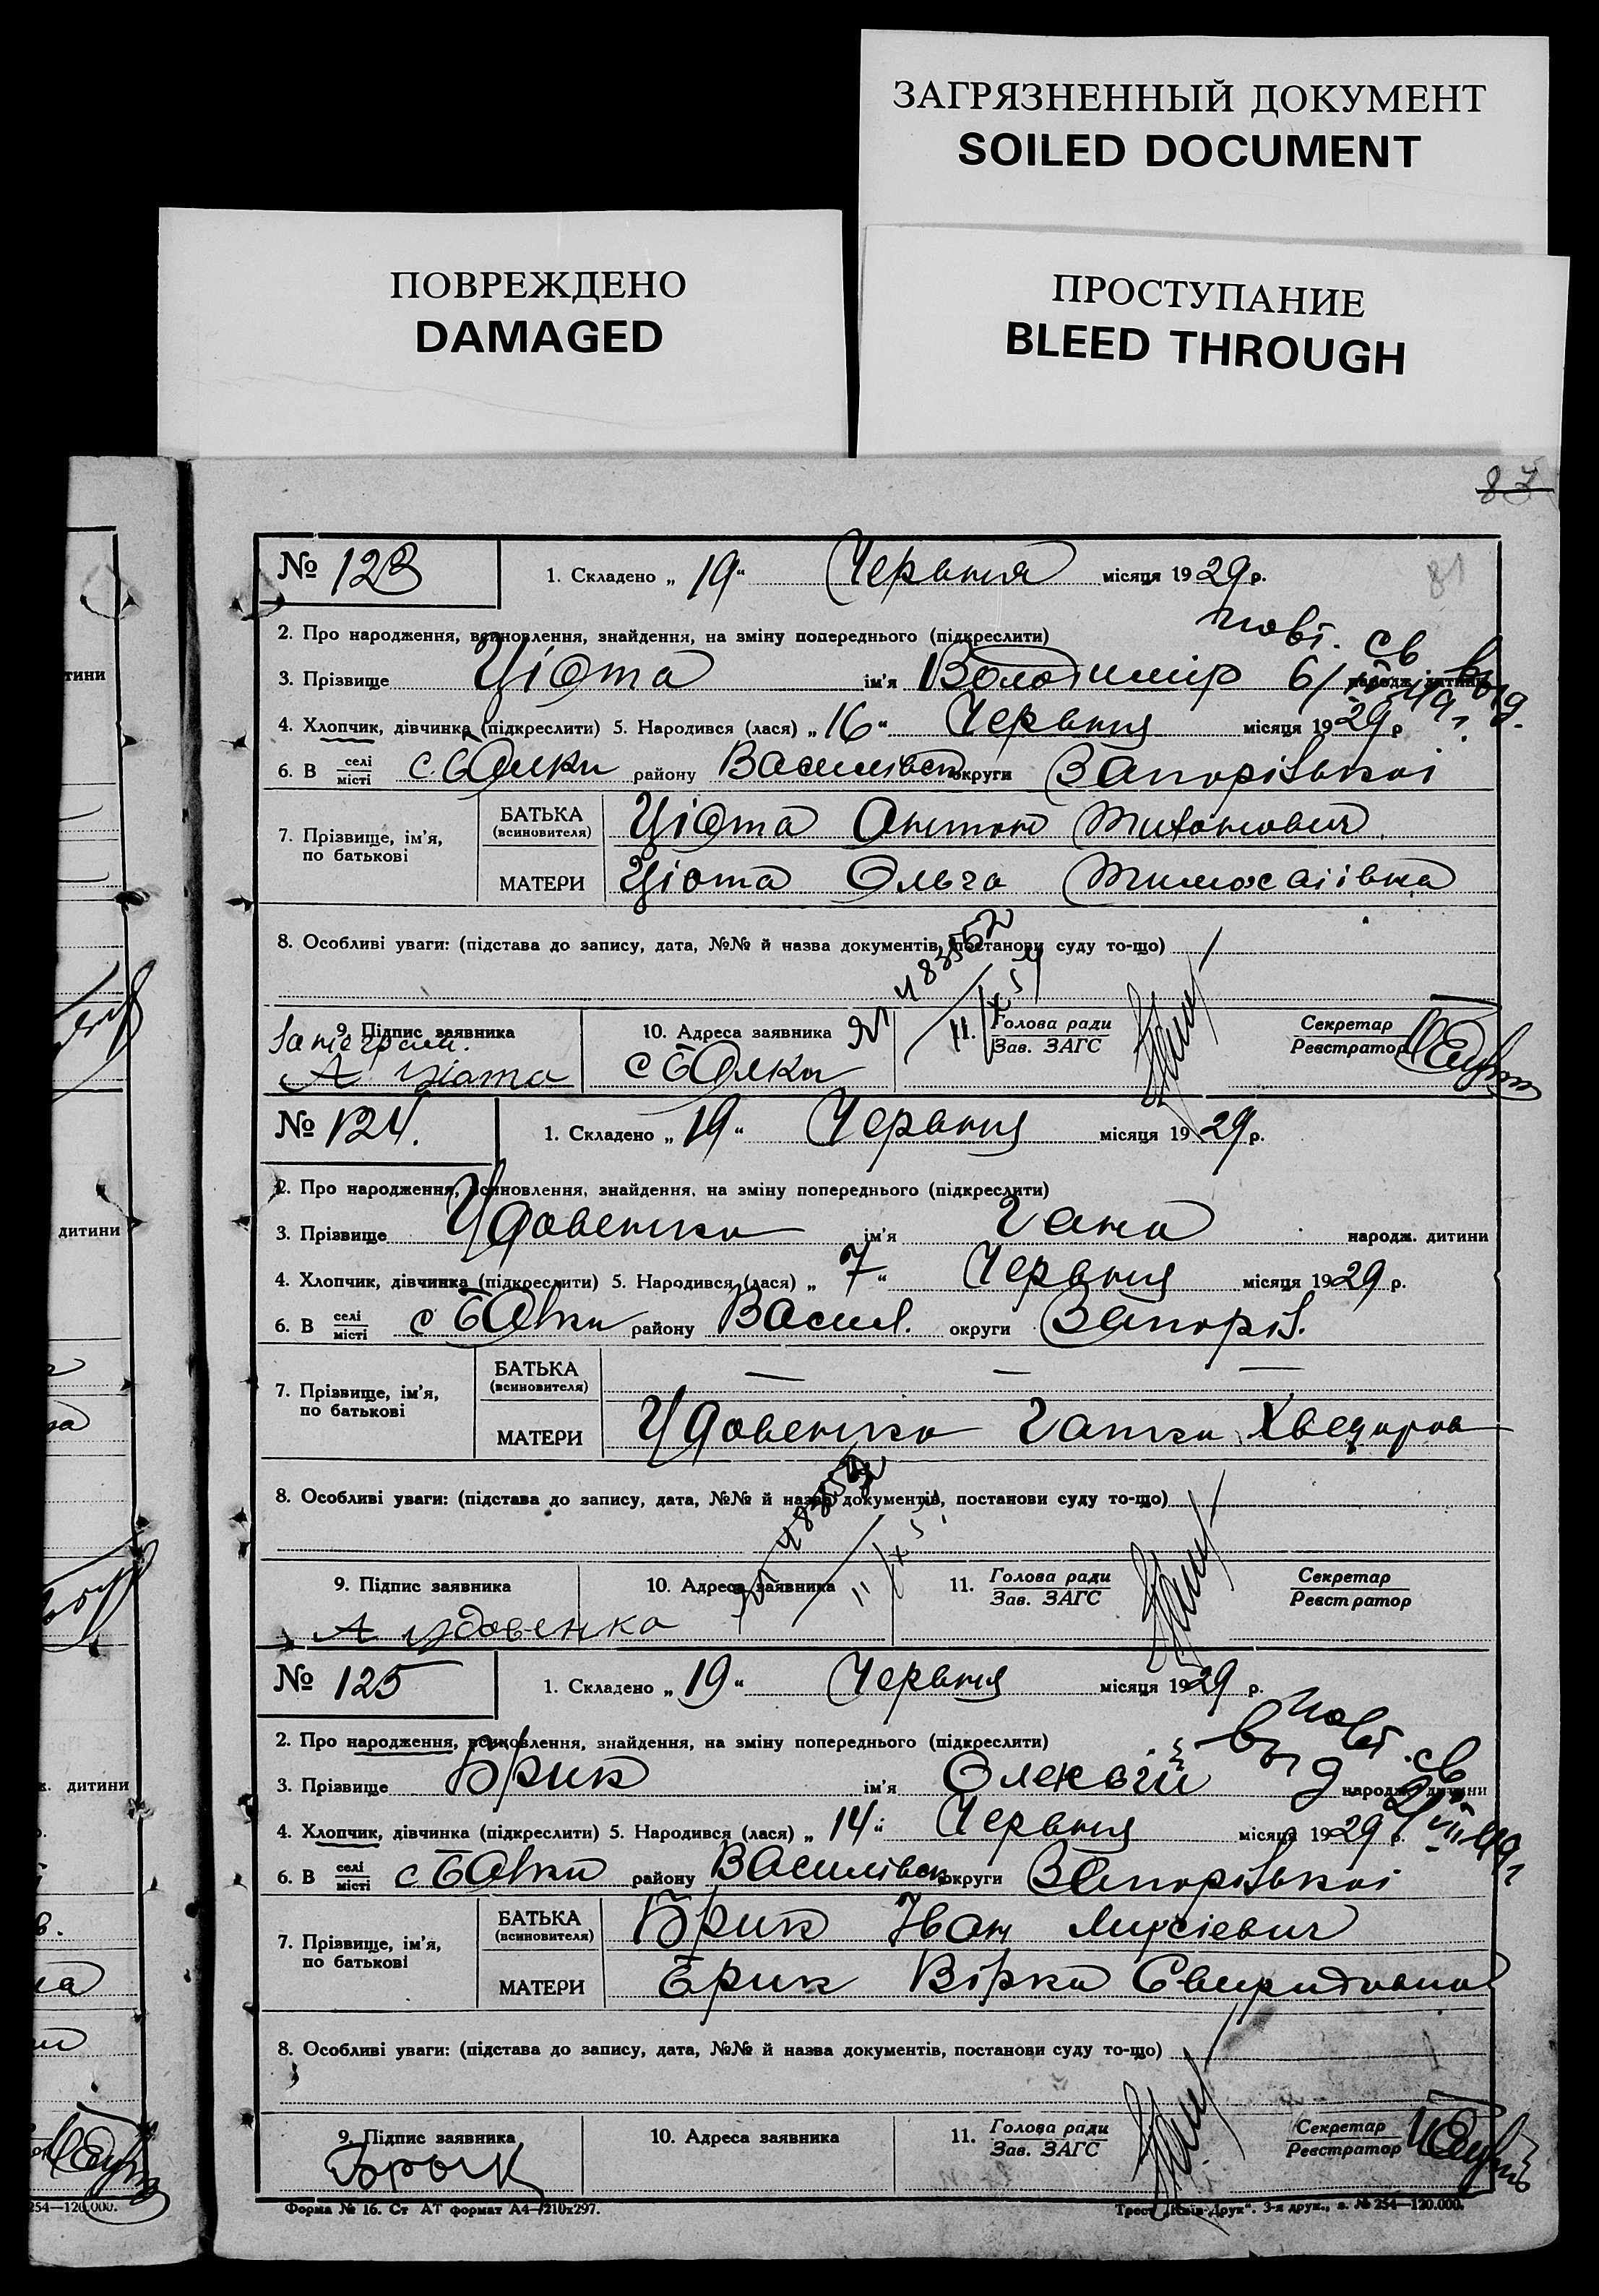 ЗАГРЯЗНЕННЫЙ ДОКУМЕНТ
SOILED DOCUMENT
ПОВРЕЖДЕНО
DAMAGED
ПРОСТУПАНИЕ
BLEED THROUGH
81
№ 123
1. Складено „ 19 “ Червння місяця 1929 р.
2. Про народження, всиновлення, знайдення, на зміну попереднього (підкреслити)
повт. св. выд.
3. Прізвище Цюта ім'я Володимир народж. дитини
4. Хлопчик, дівчинка (підкреслити) 5. Народився (лася) „ 16 “ Червня місяця 1929 р.
6. В селі/місті с. Балки району Василівськ округи Запоріської
7. Прізвище, ім'я, по батькові
БАТЬКА (всиновителя) Цюта Антон Тихонович
МАТЕРИ Цюта Ольга
8. Особливі уваги: (підстава до запису, дата, №№ й назва документів, постанови суду то-що)
9. Підпис заявника
А Цюта
10. Адреса заявника
с Балки
11. Голова ради / Зав. ЗАГС
Секретар / Реєстратор
№ 124.
1. Складено „ 19 “ Червня місяця 1929 р.
2. Про народження, всиновлення, знайдення, на зміну попереднього (підкреслити)
3. Прізвище Удовенко ім'я Гана народж. дитини
4. Хлопчик, дівчинка (підкреслити) 5. Народився (лася) „ 7 “ Червня місяця 1929 р.
6. В селі/місті с Балки району Васил. округи Запоріз.
7. Прізвище, ім'я, по батькові
БАТЬКА (всиновителя) — — —
МАТЕРИ Удовенко Ганка
8. Особливі уваги: (підстава до запису, дата, №№ й назва документів, постанови суду то-що)
9. Підпис заявника
А Удовенка
10. Адреса заявника
11. Голова ради / Зав. ЗАГС
Секретар / Реєстратор
№ 125
1. Складено „ 19 “ Червня місяця 1929 р.
2. Про народження, всиновлення, знайдення, на зміну попереднього (підкреслити)
выд повт. св
3. Прізвище Брик ім'я Олексій народж. дитини
4. Хлопчик, дівчинка (підкреслити) 5. Народився (лася) „ 14 “ Червня місяця 1929 р.
6. В селі/місті с Балки району Василівськ округи Запоріської
7. Прізвище, ім'я, по батькові
БАТЬКА (всиновителя) Брик Іван Мусієвич
МАТЕРИ Брик Вірка Свиридовна
8. Особливі уваги: (підстава до запису, дата, №№ й назва документів, постанови суду то-що)
9. Підпис заявника
Брык
10. Адреса заявника
11. Голова ради / Зав. ЗАГС
Секретар / Реєстратор
Форма № 16. Ст АТ формат А4—210х297.
Трест „Київ-Друк“. 3-я друк., з. № 254—120.000.
тини
дитини
дитини
254—120.000.